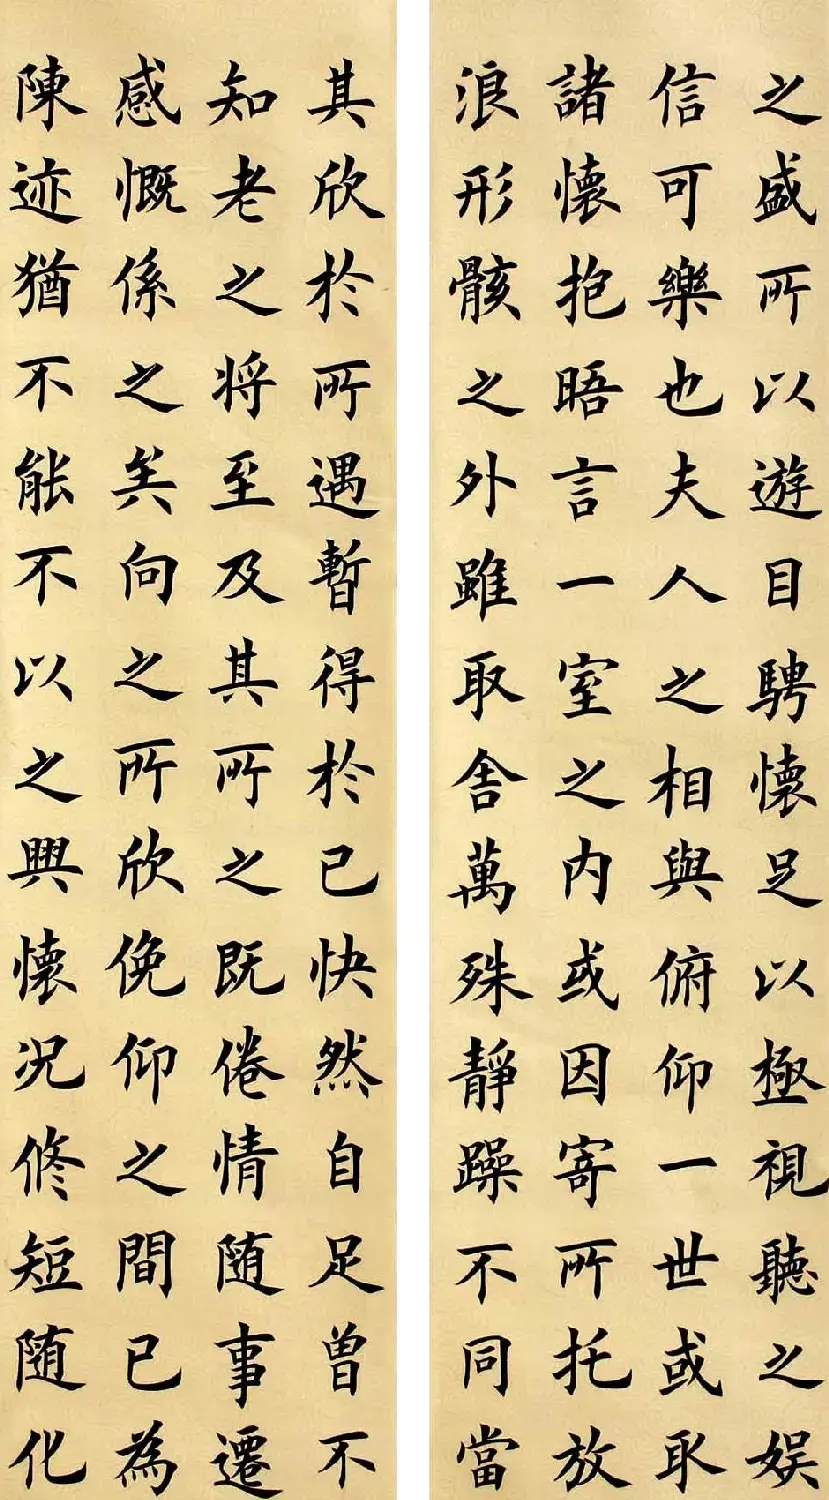 之盛所以遊目騁懷足以極視聽之娱
信可樂也夫人之相與俯仰一世或取
諸懷抱晤言一室之内或因寄所托放
浪形骸之外雖取舎萬殊静躁不同當
其欣於所遇暫得於己快然自足曾不
知老之将至及其所之既倦情随事遷
感慨係之矣向之所欣俛仰之間已為
陳迹猶不能不以之興懷况修短随化